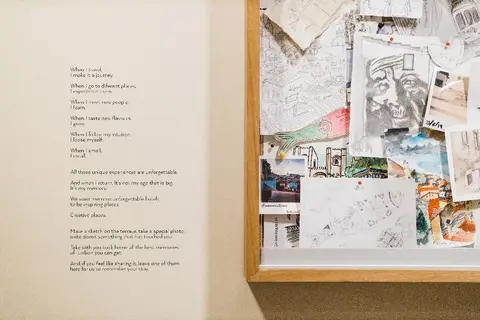 When I travel,
I make it a journey.
When I go to different places,
I experience more.
When I meet new people,
I learn.
When I taste new flavours,
I grow.
When I follow my intuition,
I loose myself.
When I smell,
I recall.
All those unique experiences are unforgettable.
And when I return, it's not my ego that is big.
It's my memory.
We want more no unforgettable hotels
to be inspiring places.
Creative places.
Make a sketch on the terrace, take a special photo,
write about something that has touched you.
Take with you back home all the best memories
of Lisbon you can get.
And, if you feel like sharing it, leave one of them
here for us to remember your stay.